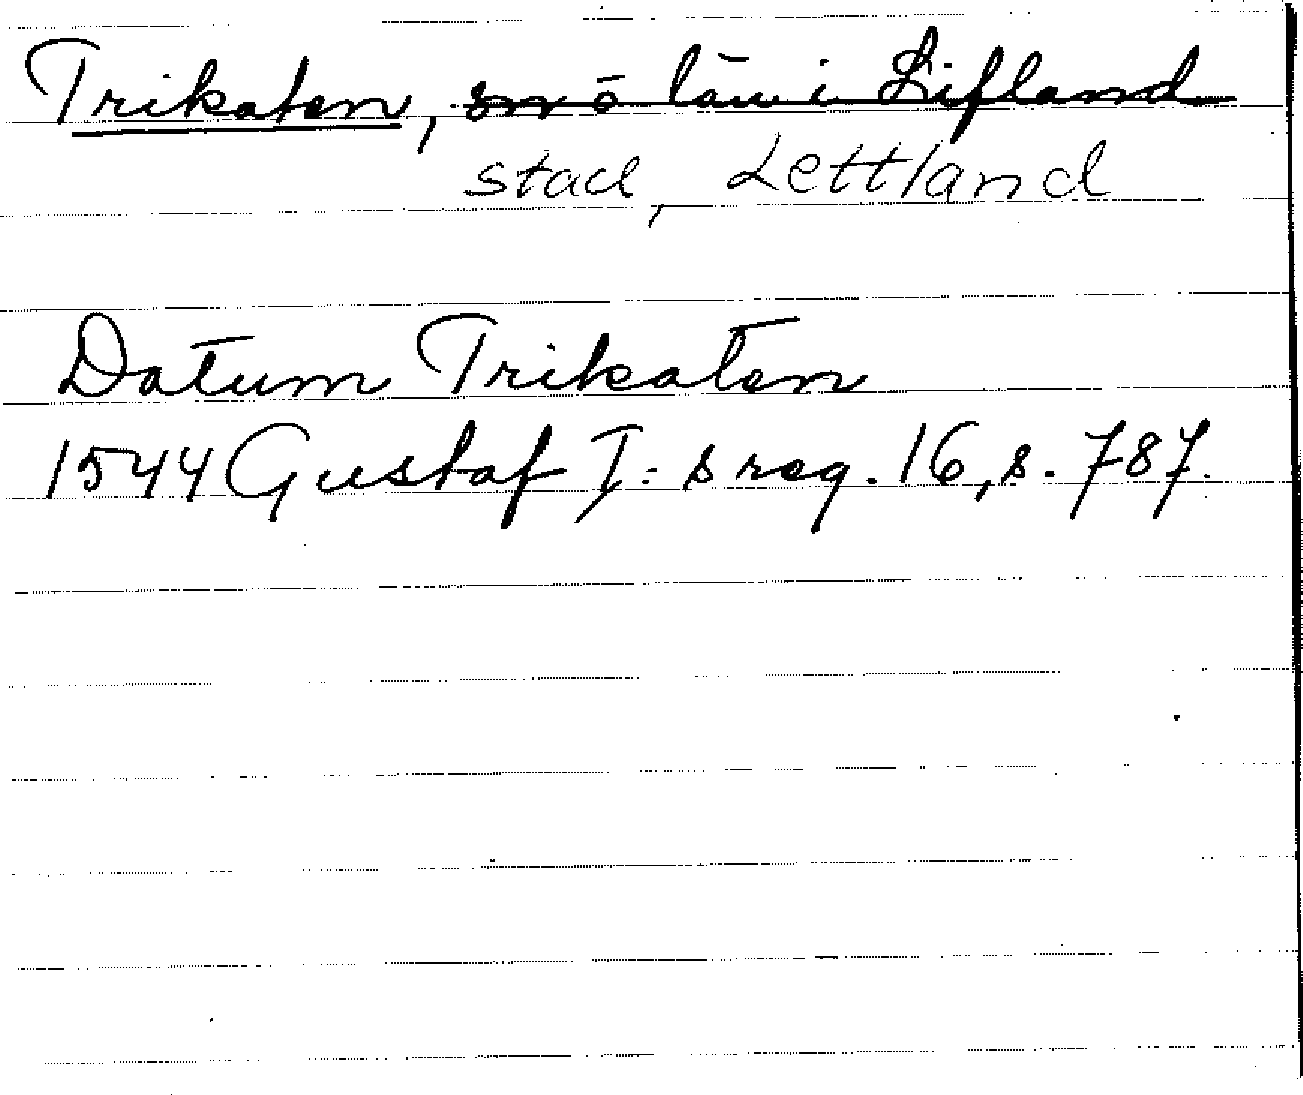 Trikaten, i Lifland
stad, Lettland
Datum Trikaten
1544 Gustaf I:s reg. 16, s. 787.